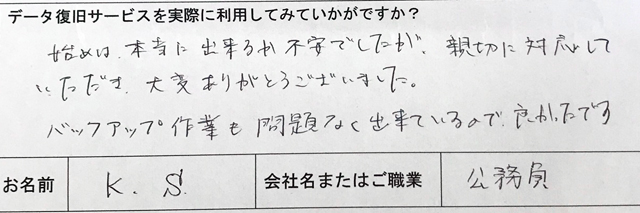 データ復旧サービスを実際に利用してみていかがですか？
始めは、本当に出来るか不安でしたが、親切に対応して
いただき、大変ありがとうございました。
バックアップ作業も問題なく出来ているので、良かったです
お名前 K. S. 会社名またはご職業 公務員